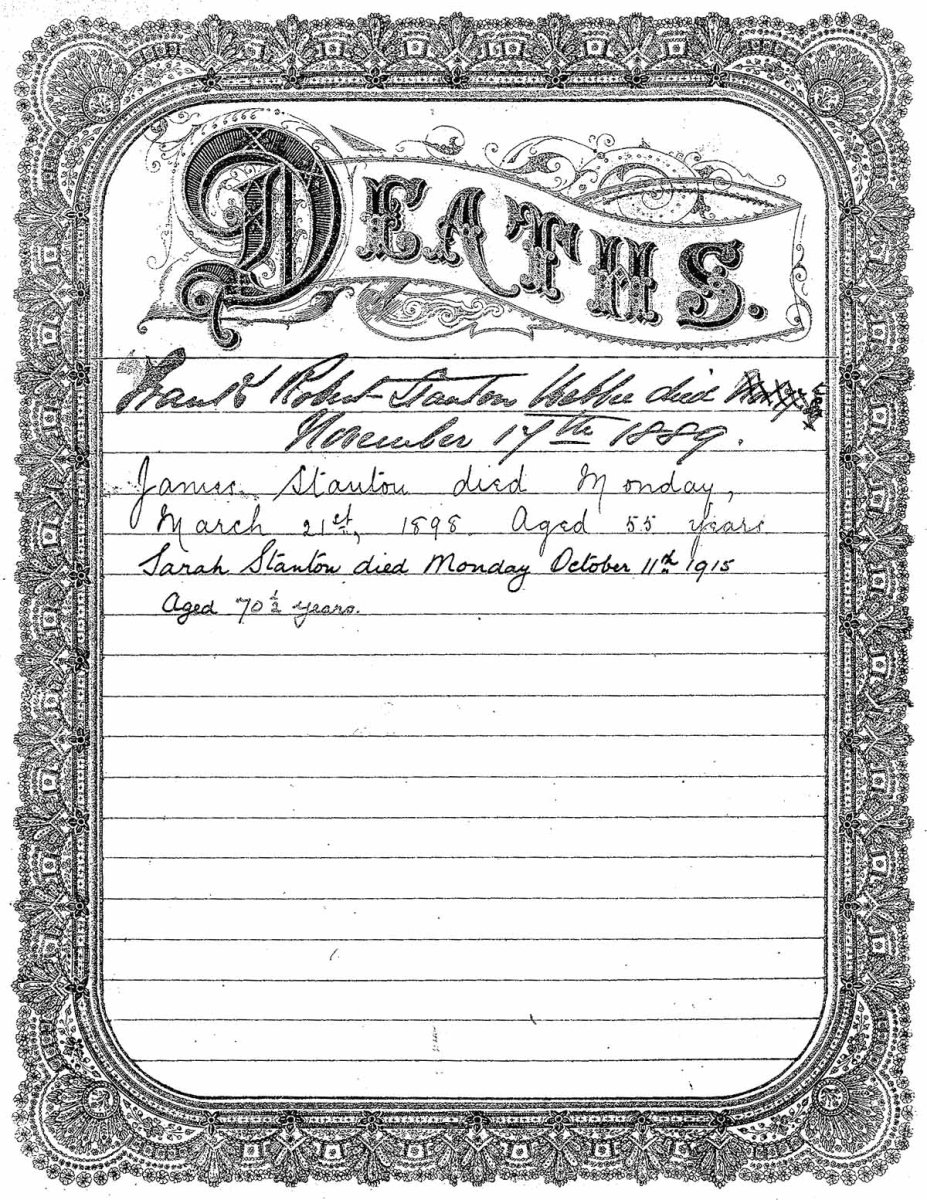 DEATHS.
Frank Robert Stanton died
November 17th 1889.
James Stanton died Monday,
March 21st, 1898 Aged 55 years
Sarah Stanton died Monday October 11th 1915
Aged 70 ½ years.